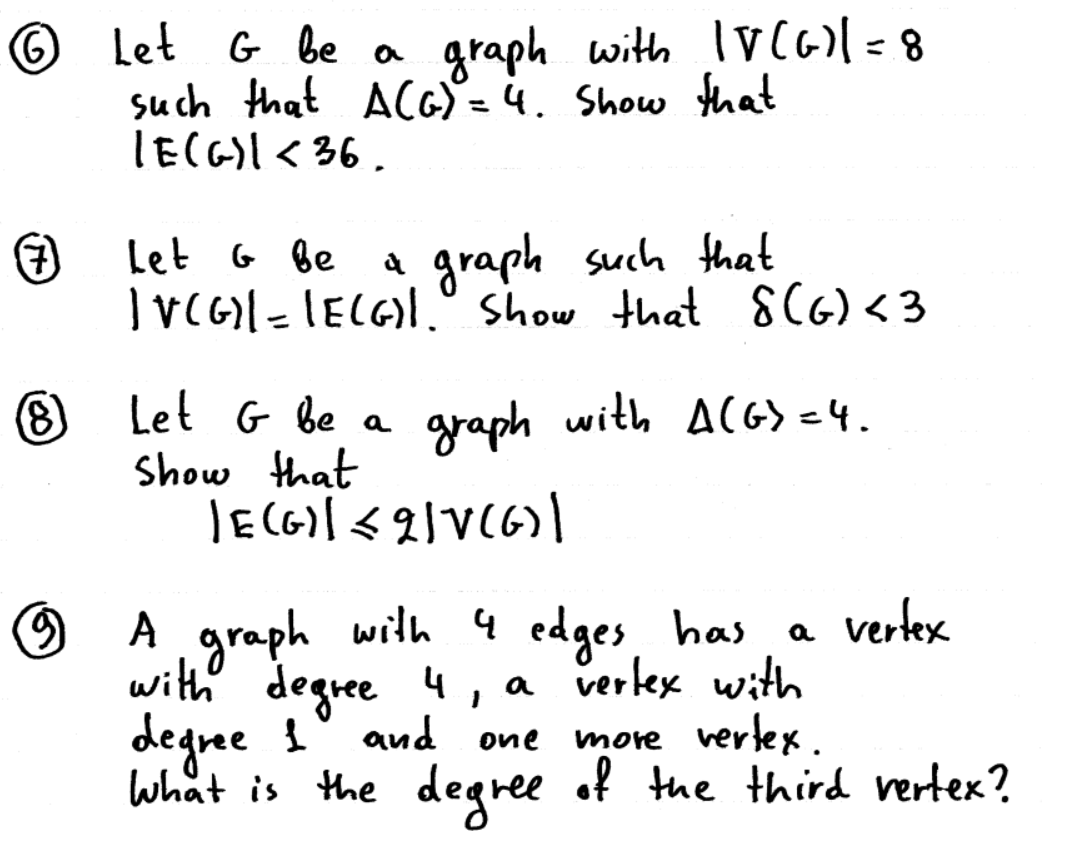 ⑥ Let G be a graph with |V(G)| = 8
such that Δ(G) = 4. Show that
|E(G)| < 36.
⑦ Let G be a graph such that
|V(G)| = |E(G)|. Show that δ(G) < 3
⑧ Let G be a graph with Δ(G) = 4.
Show that
|E(G)| ≤ 2|V(G)|
⑨ A graph with 4 edges has a vertex
with degree 4, a vertex with
degree 1 and one more vertex.
What is the degree of the third vertex?